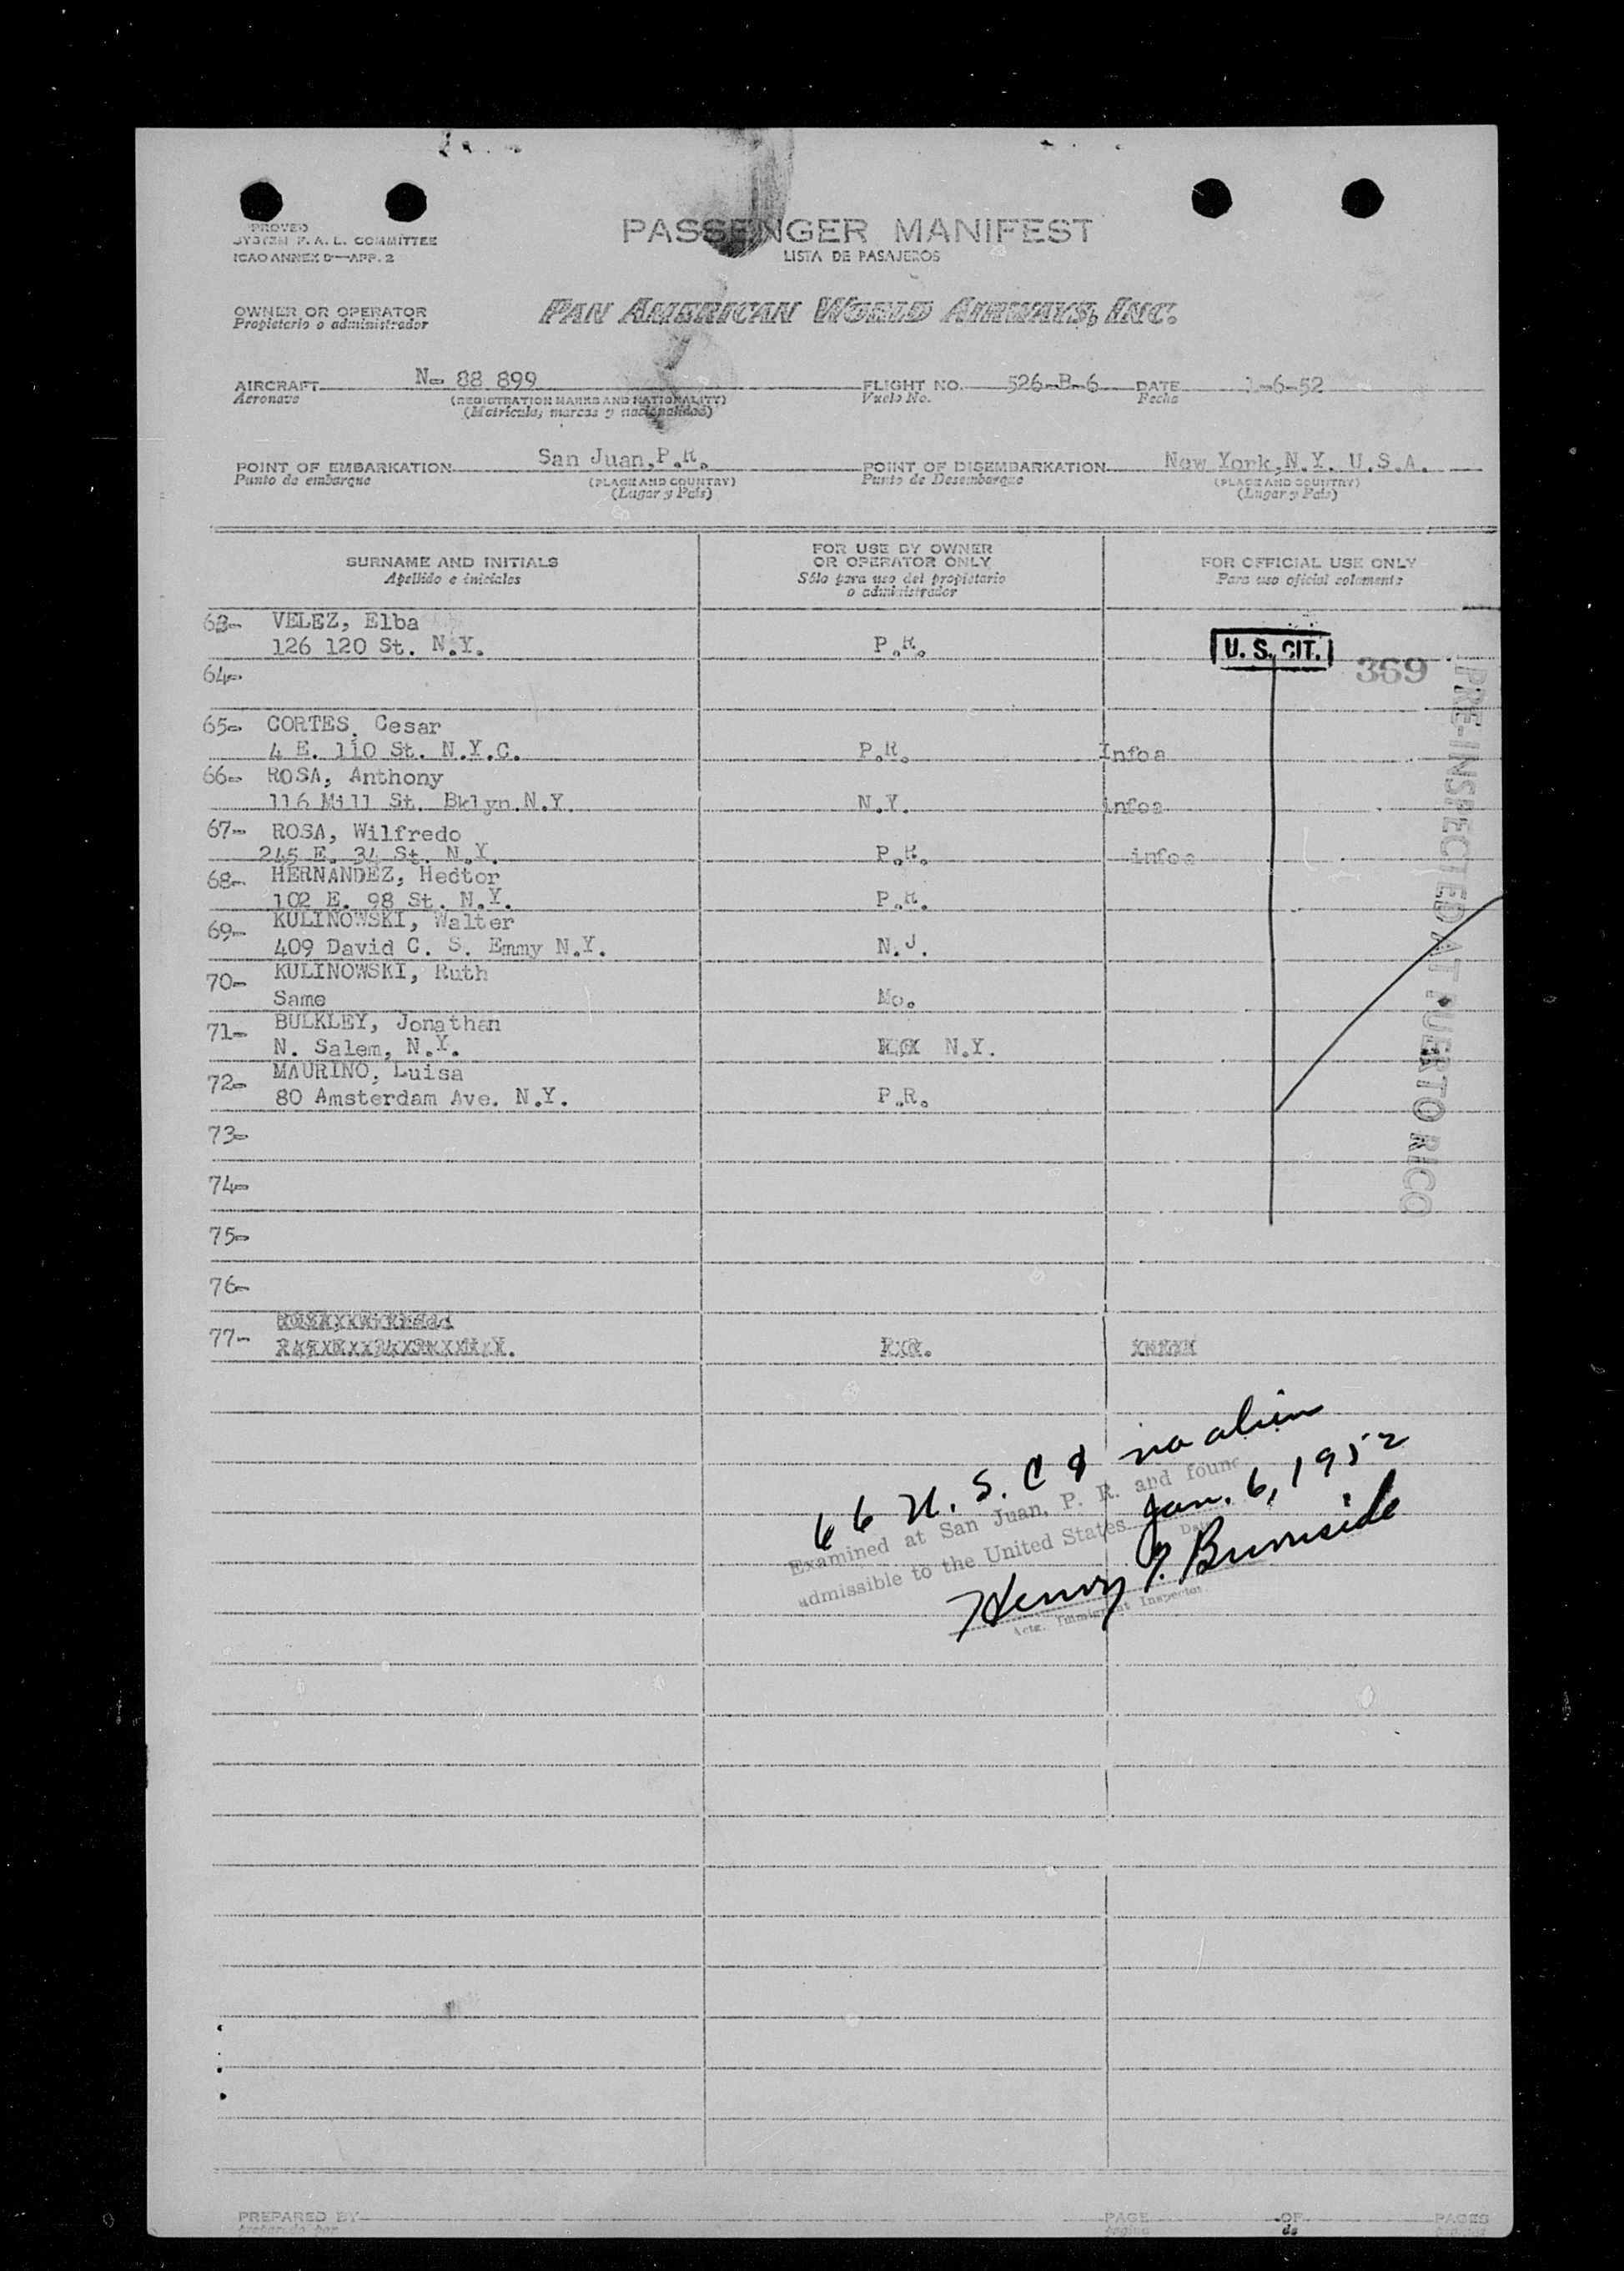 PROVED
SYSTEM F. A. L. COMMITTEE
ICAO ANNEX 9—APP. 2
PASSENGER MANIFEST
LISTA DE PASAJEROS
OWNER OR OPERATOR
Propietario o administrador
PAN AMERICAN WORLD AIRWAYS, INC.
AIRCRAFT N- 88 899 FLIGHT NO. 526-B-6 DATE 1-6-52
Aeronave (REGISTRATION MARKS AND NATIONALITY) Vuelo No. Fecha
(Matrícula, marcas y nacionalidad)
POINT OF EMBARKATION San Juan, P.R. POINT OF DISEMBARKATION New York, N.Y. U.S.A.
Punto de embarque (PLACE AND COUNTRY) Punto de Desembarque (PLACE AND COUNTRY)
(Lugar y País) (Lugar y País)
SURNAME AND INITIALS
Apellido e iniciales
FOR USE BY OWNER
OR OPERATOR ONLY
Sólo para uso del propietario
o administrador
FOR OFFICIAL USE ONLY
Para uso oficial solamente
63- VELEZ, Elba
126 120 St. N.Y. P.R. U. S. CIT. 369
64-
65- CORTES, Cesar
4 E. 110 St. N.Y.C. P.R. Infoa
66- ROSA, Anthony
116 Mill St. Bklyn.N.Y. N.Y. infoa
67- ROSA, Wilfredo
245 E. 34 St. N.Y. P.R. infoa
68- HERNANDEZ, Hector
102 E. 98 St. N.Y. P.R.
69- KULINOWSKI, Walter
409 David C. S. Emmy N.Y. N.J.
70- KULINOWSKI, Ruth
Same Mo.
71- BULKLEY, Jonathan
N. Salem, N.Y. N.Y.
72- MAURINO, Luisa
80 Amsterdam Ave. N.Y. P.R.
73-
74-
75-
76-
77-
PRE-INSPECTED AT PUERTO RICO
66 U.S.C & no alien
Examined at San Juan, P. R. and found
admissible to the United States Jan. 6, 1952
Date
Henry J. Burnside
Actg. Immigrant Inspector
PREPARED BY PAGE OF PAGES
Preparado por Página de